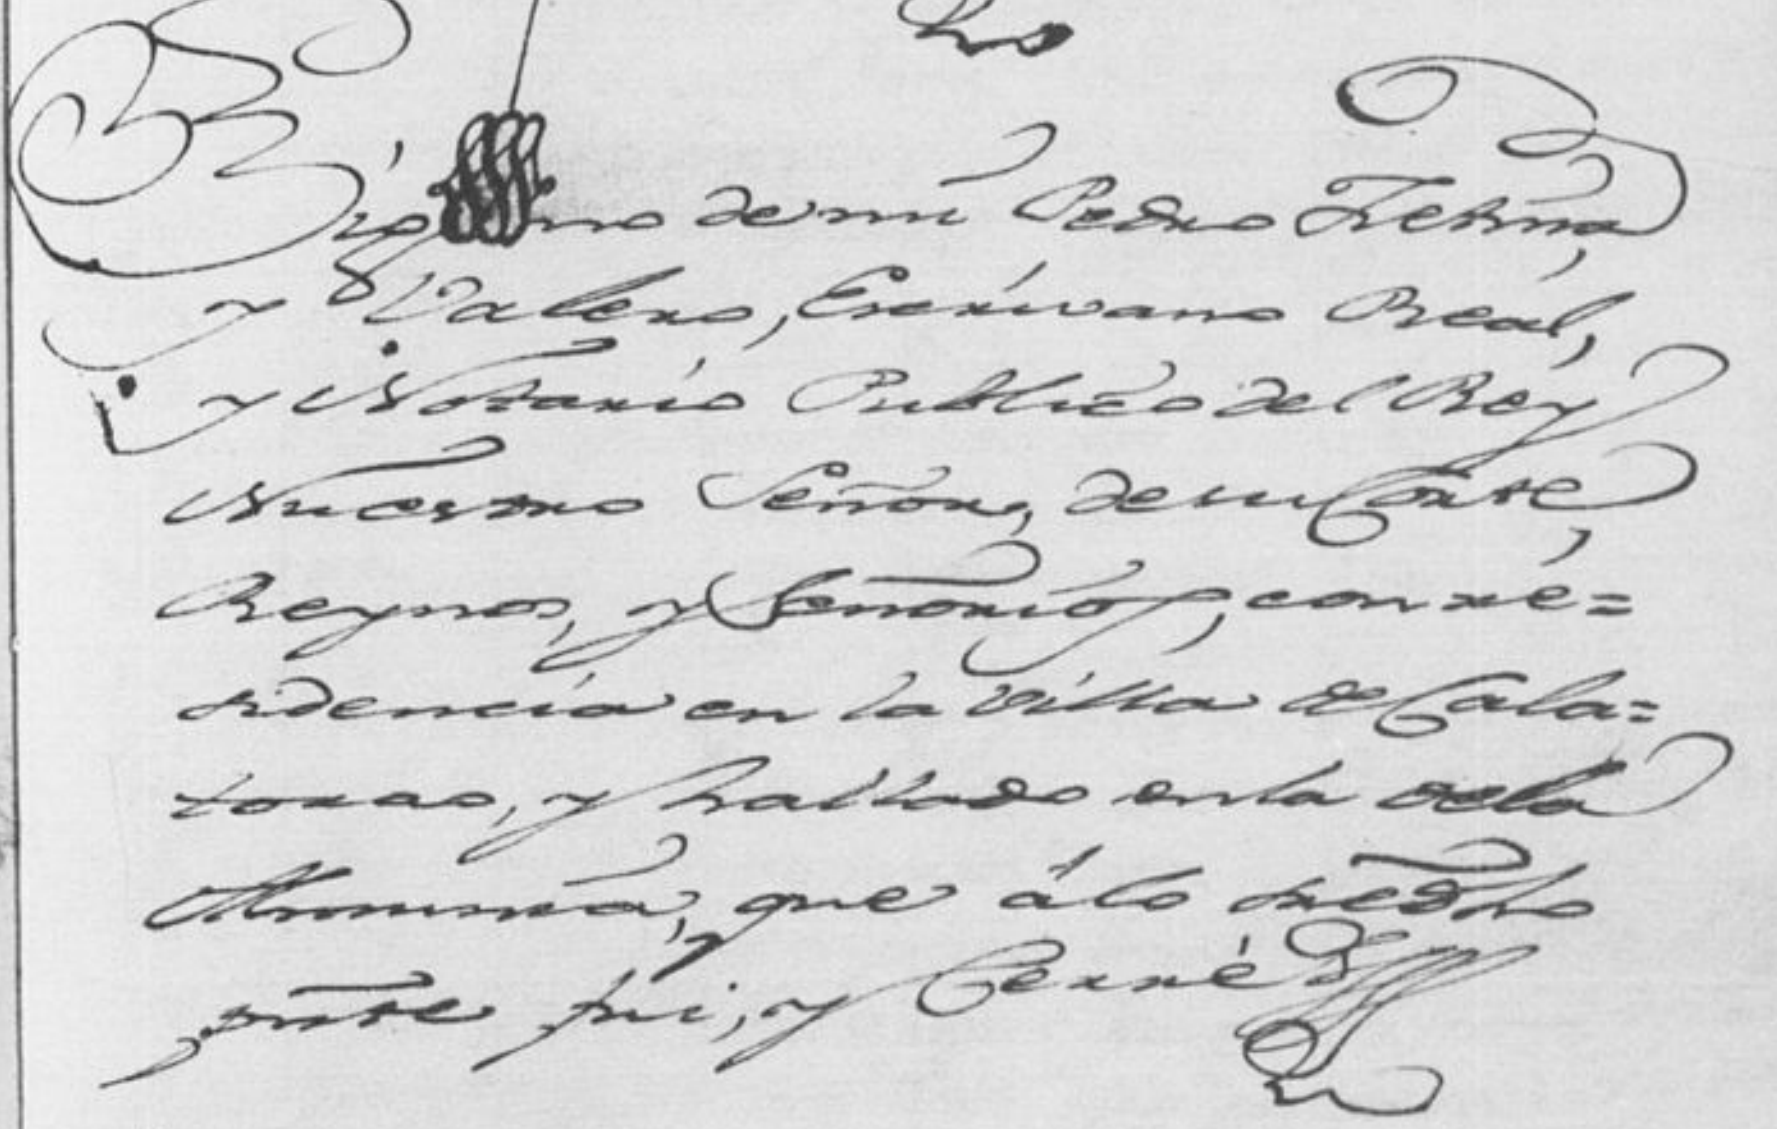 Sig no de mi Pedro
y Valero, Escrivano Real,
y Notario Publico del Rey
Nuestro Señor, de su Corte,
Reynos, y Señorios, con re=
sidencia en la Villa de Cala=
torao, y hallado en la de la
Almunia, que á lo sredho
pnte fui, y Cerré